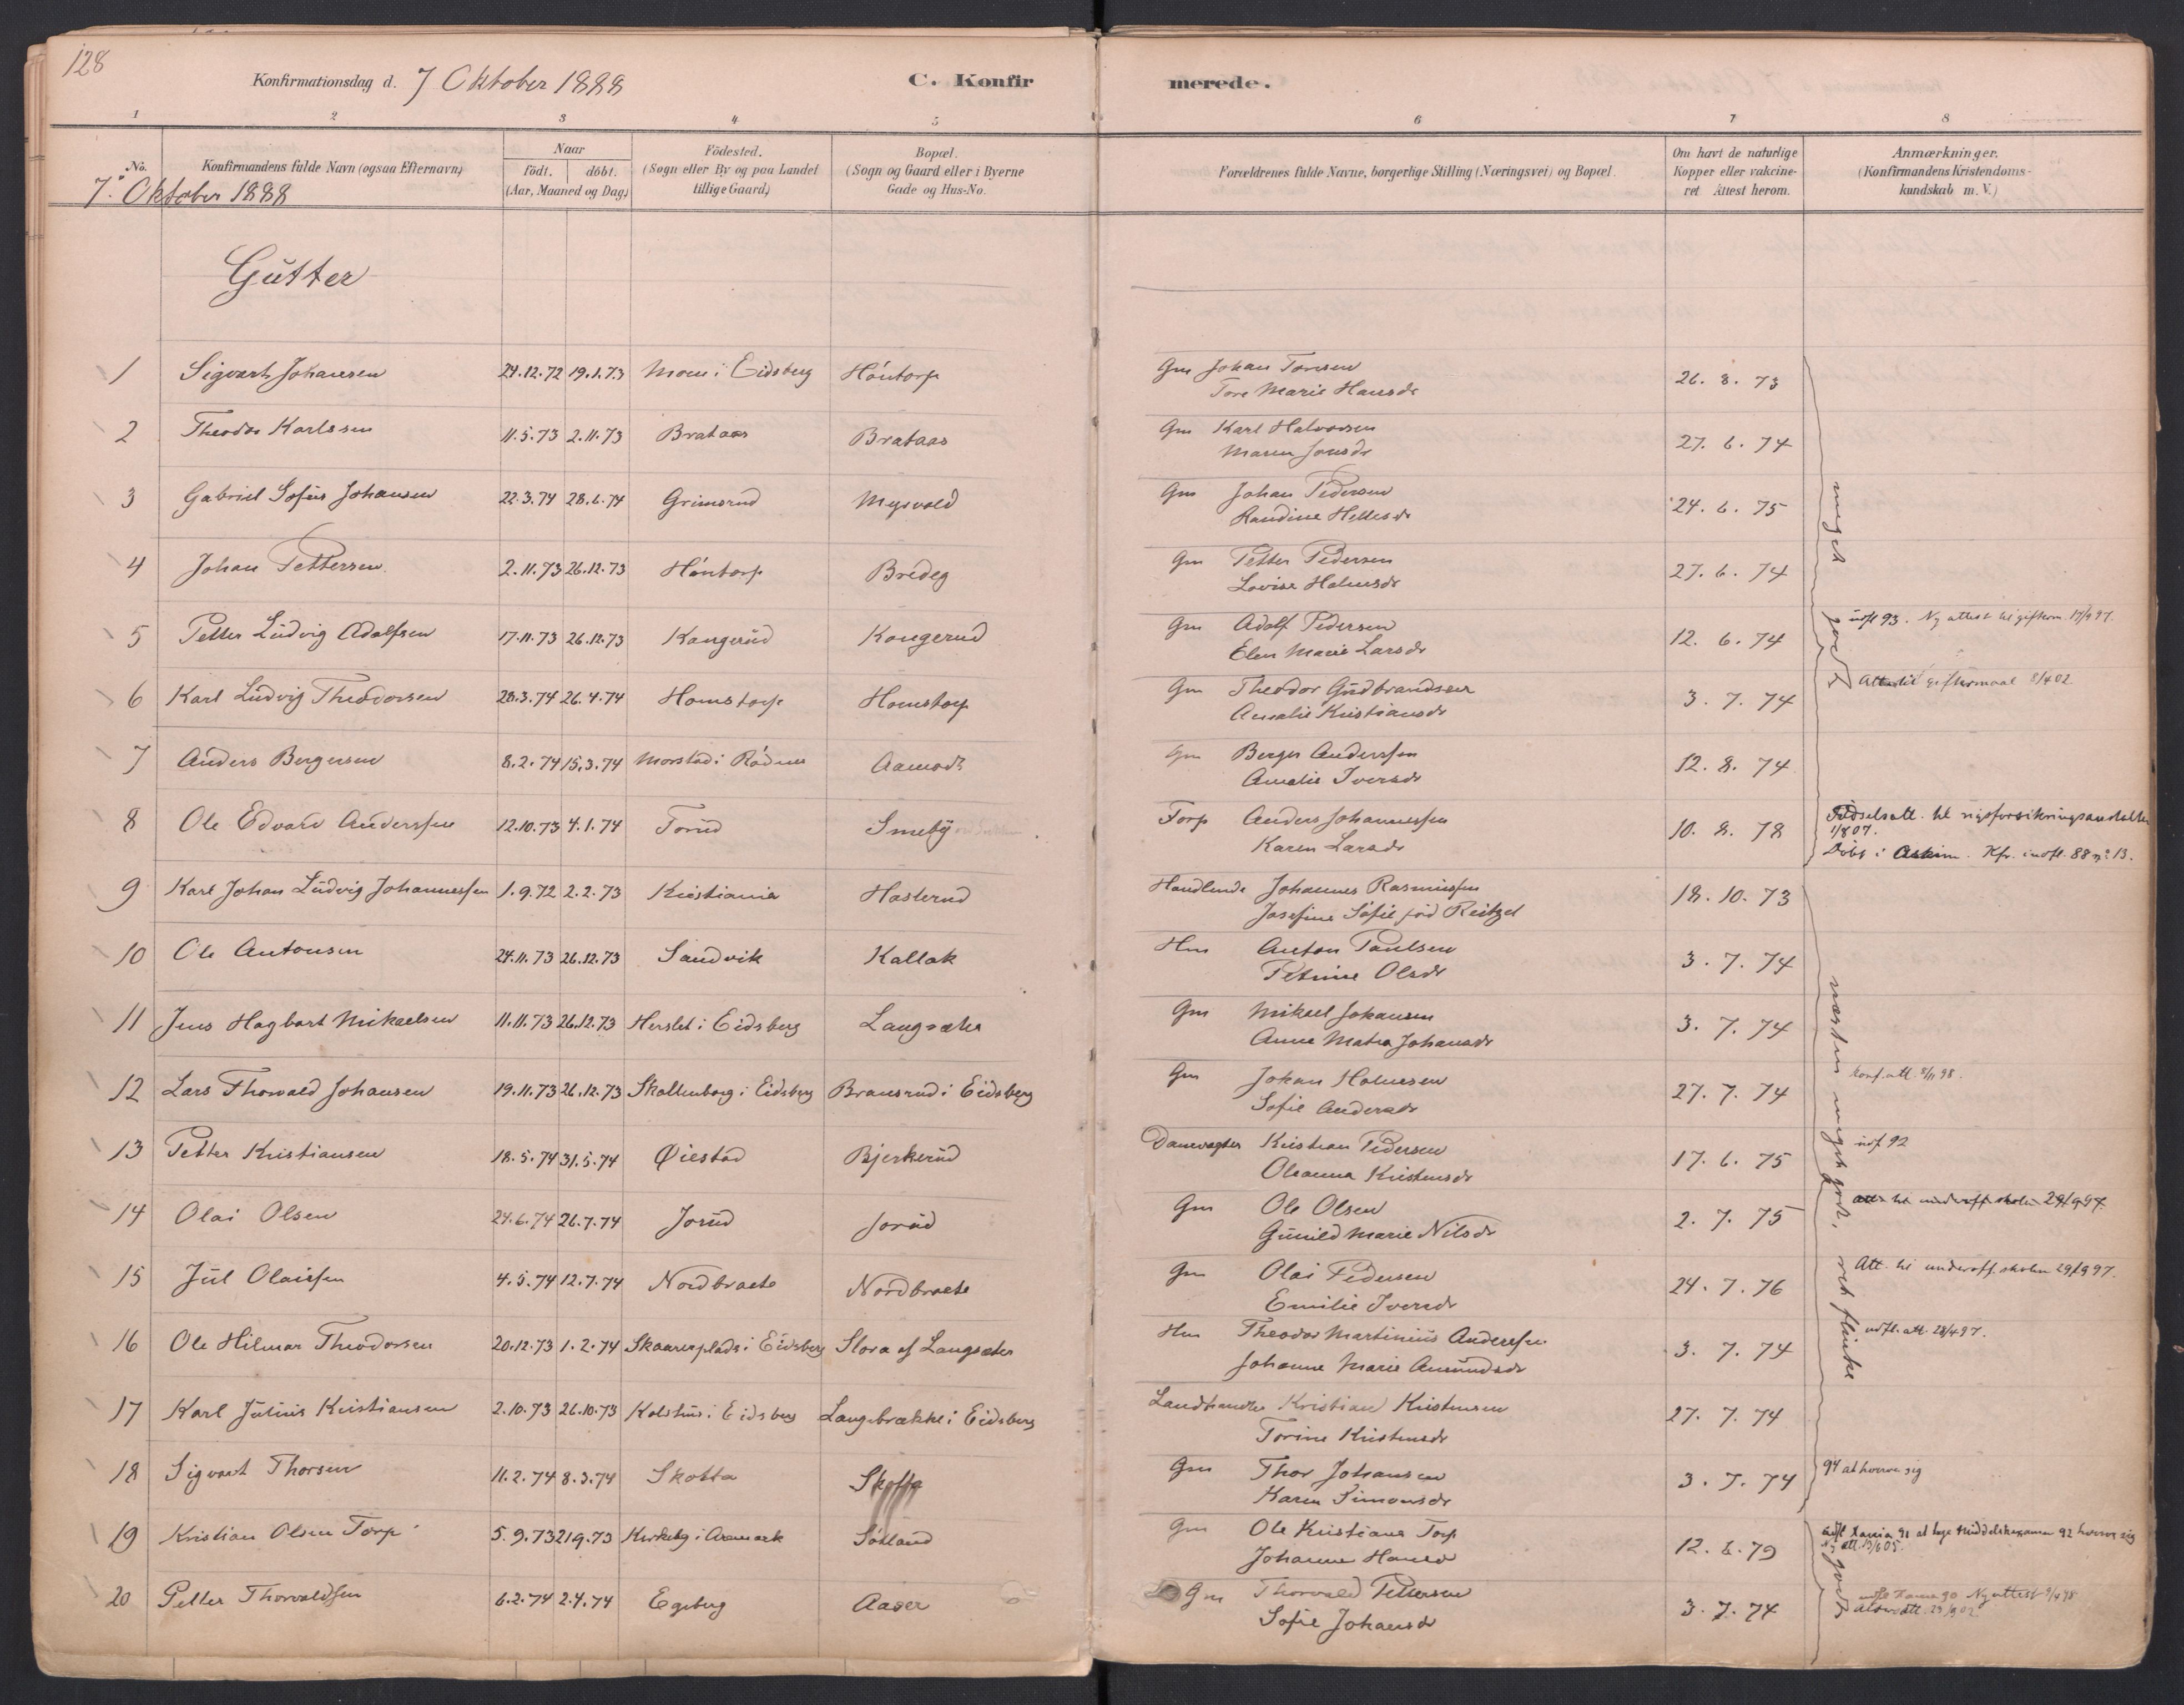 128
Konfirmationsdag d. 7 Oktober 1888
C. Konfirmerede.
1 2 3 4 5 6 7 8
No. Konfirmandens fulde Navn (ogsaa Efternavn) Naar født. døbt. (Aar, Maaned og Dag) Fødested. (Sogn eller By og paa Landet tillige Gaard) Bopæl. (Sogn og Gaard eller i Byerne Gade og Hus-No. Forældrenes fulde Navne, borgerlige Stilling (Næringsvei) og Bopæl. Om havt de naturlige Kopper eller vakcineret. Attest herom. Anmærkninger. (Konfirmandens Kristendomskundskab m. V.)
7. Oktober 1888
Gutter
1 Sigvart Johansen 24.12.72 19.1.73 Moen i Eidsberg Höntorp Gm Johan Toresen 26. 8. 73
Tore Marie Hansdr
2 Theodor Karlssen 11.5.73 2.11.73 Brataas Brataas Gm Karl Halvorsen 27. 6. 74
Maren Jonsdr
3 Gabriel Sofus Johansen 22.3.74 28.6.74 Grimsrud Mysvold Gm Johan Pedersen 24. 6. 75
Randine Hellesdr
4 Johan Pettersen 2.11.73 26.12.73 Höntorp Bredeg Gm Petter Pedersen 27. 6. 74
Lovise Holmsdr
5 Petter Ludvig Adolfsen 17.11.73 26.12.73 Kongerud Kongerud Gm Adolf Pedersen 12. 6. 74 udfl 93. Ny attest til giftem. 17/9 97.
Elen Marie Larsdr
6 Karl Ludvig Theodorsen 28.3.74 26.4.74 Homstorp Homstorp Gm Theodor Gudbrandssen 3. 7. 74 Att. til giftermaal 8/4 02
Amalie Kristiansdr
meget godt
7 Anders Bergersen 8.2.74 15.3.74 Morstad i Rödenes Aamodt Gm Berger Anderssen 12. 8. 74
Amalie Iversdr
8 Ole Edvard Anderssen 12.10.73 4.1.74 Torud Smeby Torp Anders Johannessen 10. 8. 78 Fødselsatt. til rigsforsikringsanstalten 1/8 07.
Karen Larsdr Døbt i Askim. Kfr. indfl. 88 no 13.
9 Karl Johan Ludvig Johannessen 1.9.72 2.2.73 Kristiania Hasterud Handlende Johannes Rasmussen 18. 10. 73
Josefine Sofie föd Reitzel
10 Ole Antonsen 24.11.73 26.12.73 Sandvik Kallak Hm Anton Paulsen 3. 7. 74
Petrine Olsdr
11 Jens Hagbart Mikaelsen 11.11.73 26.12.73 Herslet i Eidsberg Langsæter Gm Mikael Johansen 3. 7. 74
Anne Matea Johansdr
12 Lars Thorvald Johansen 19.11.73 26.12.73 Skallenborg i Eidsberg Bransrud i Eidsberg Gm Johan Holmesen 27. 7. 74 Konf. att. 8/11 98.
Sofie Andersdr
13 Petter Kristiansen 18.5.74 31.5.74 Øiestad Bjerkerud Kristian Pedersen 17. 6. 75 udf 92
Oleanna Kristensdr
14 Olai Olsen 24.6.74 26.7.74 Jorud Jorud Gm Ole Olsen 2. 7. 75 att. til underoff. skolen 29/9 97.
Gunild Marie Nilsdr
15 Jul Olaissen 4.5.74 12.7.74 Nordbraate Nordbraate Gm Olai Pedersen 24. 7. 76 Att. til underoff. skolen 29/9 97.
Emilie Iversdr
16 Ole Hilmar Theodorsen 20.12.73 1.2.74 Skaarerplads i Eidsberg Slora af Langsæter Hm Theodor Martinius Anderssen 3. 7. 74 udfl. att. 28/4 97.
Johanne Marie Amundsdr
17 Karl Julius Kristiansen 2.10.73 26.10.73 Kolshus i Eidsberg Langebrække i Eidsberg Landhandler Kristian Kristensen 27. 7. 74
Torine Kristensdr
18 Sigvart Thorsen 11.2.74 8.3.74 Skotta Skotta Gm Thor Johansen 3. 7. 74 94 at hverve sig
Karen Simonsdr
næsten meget godt, ret flinke
19 Kristian Olsen Torp 5.9.73 21.9.73 Kirkeby i Aremark Sötland Gm Ole Kristians Torp 12. 6. 79 udfl. Xania 91 at tage Middelskexamen 92 hverve sig
Johanne Hansd Ny att. 13/6 05.
20 Petter Thorvaldsen 6.2.74 2.4.74 Egeberg Aaser Gm Thorvald Pettersen 3. 7. 74 udfl Xania 90 Ny attest 9/4 98
Sofie Johansdr att. 23/9 02
godt